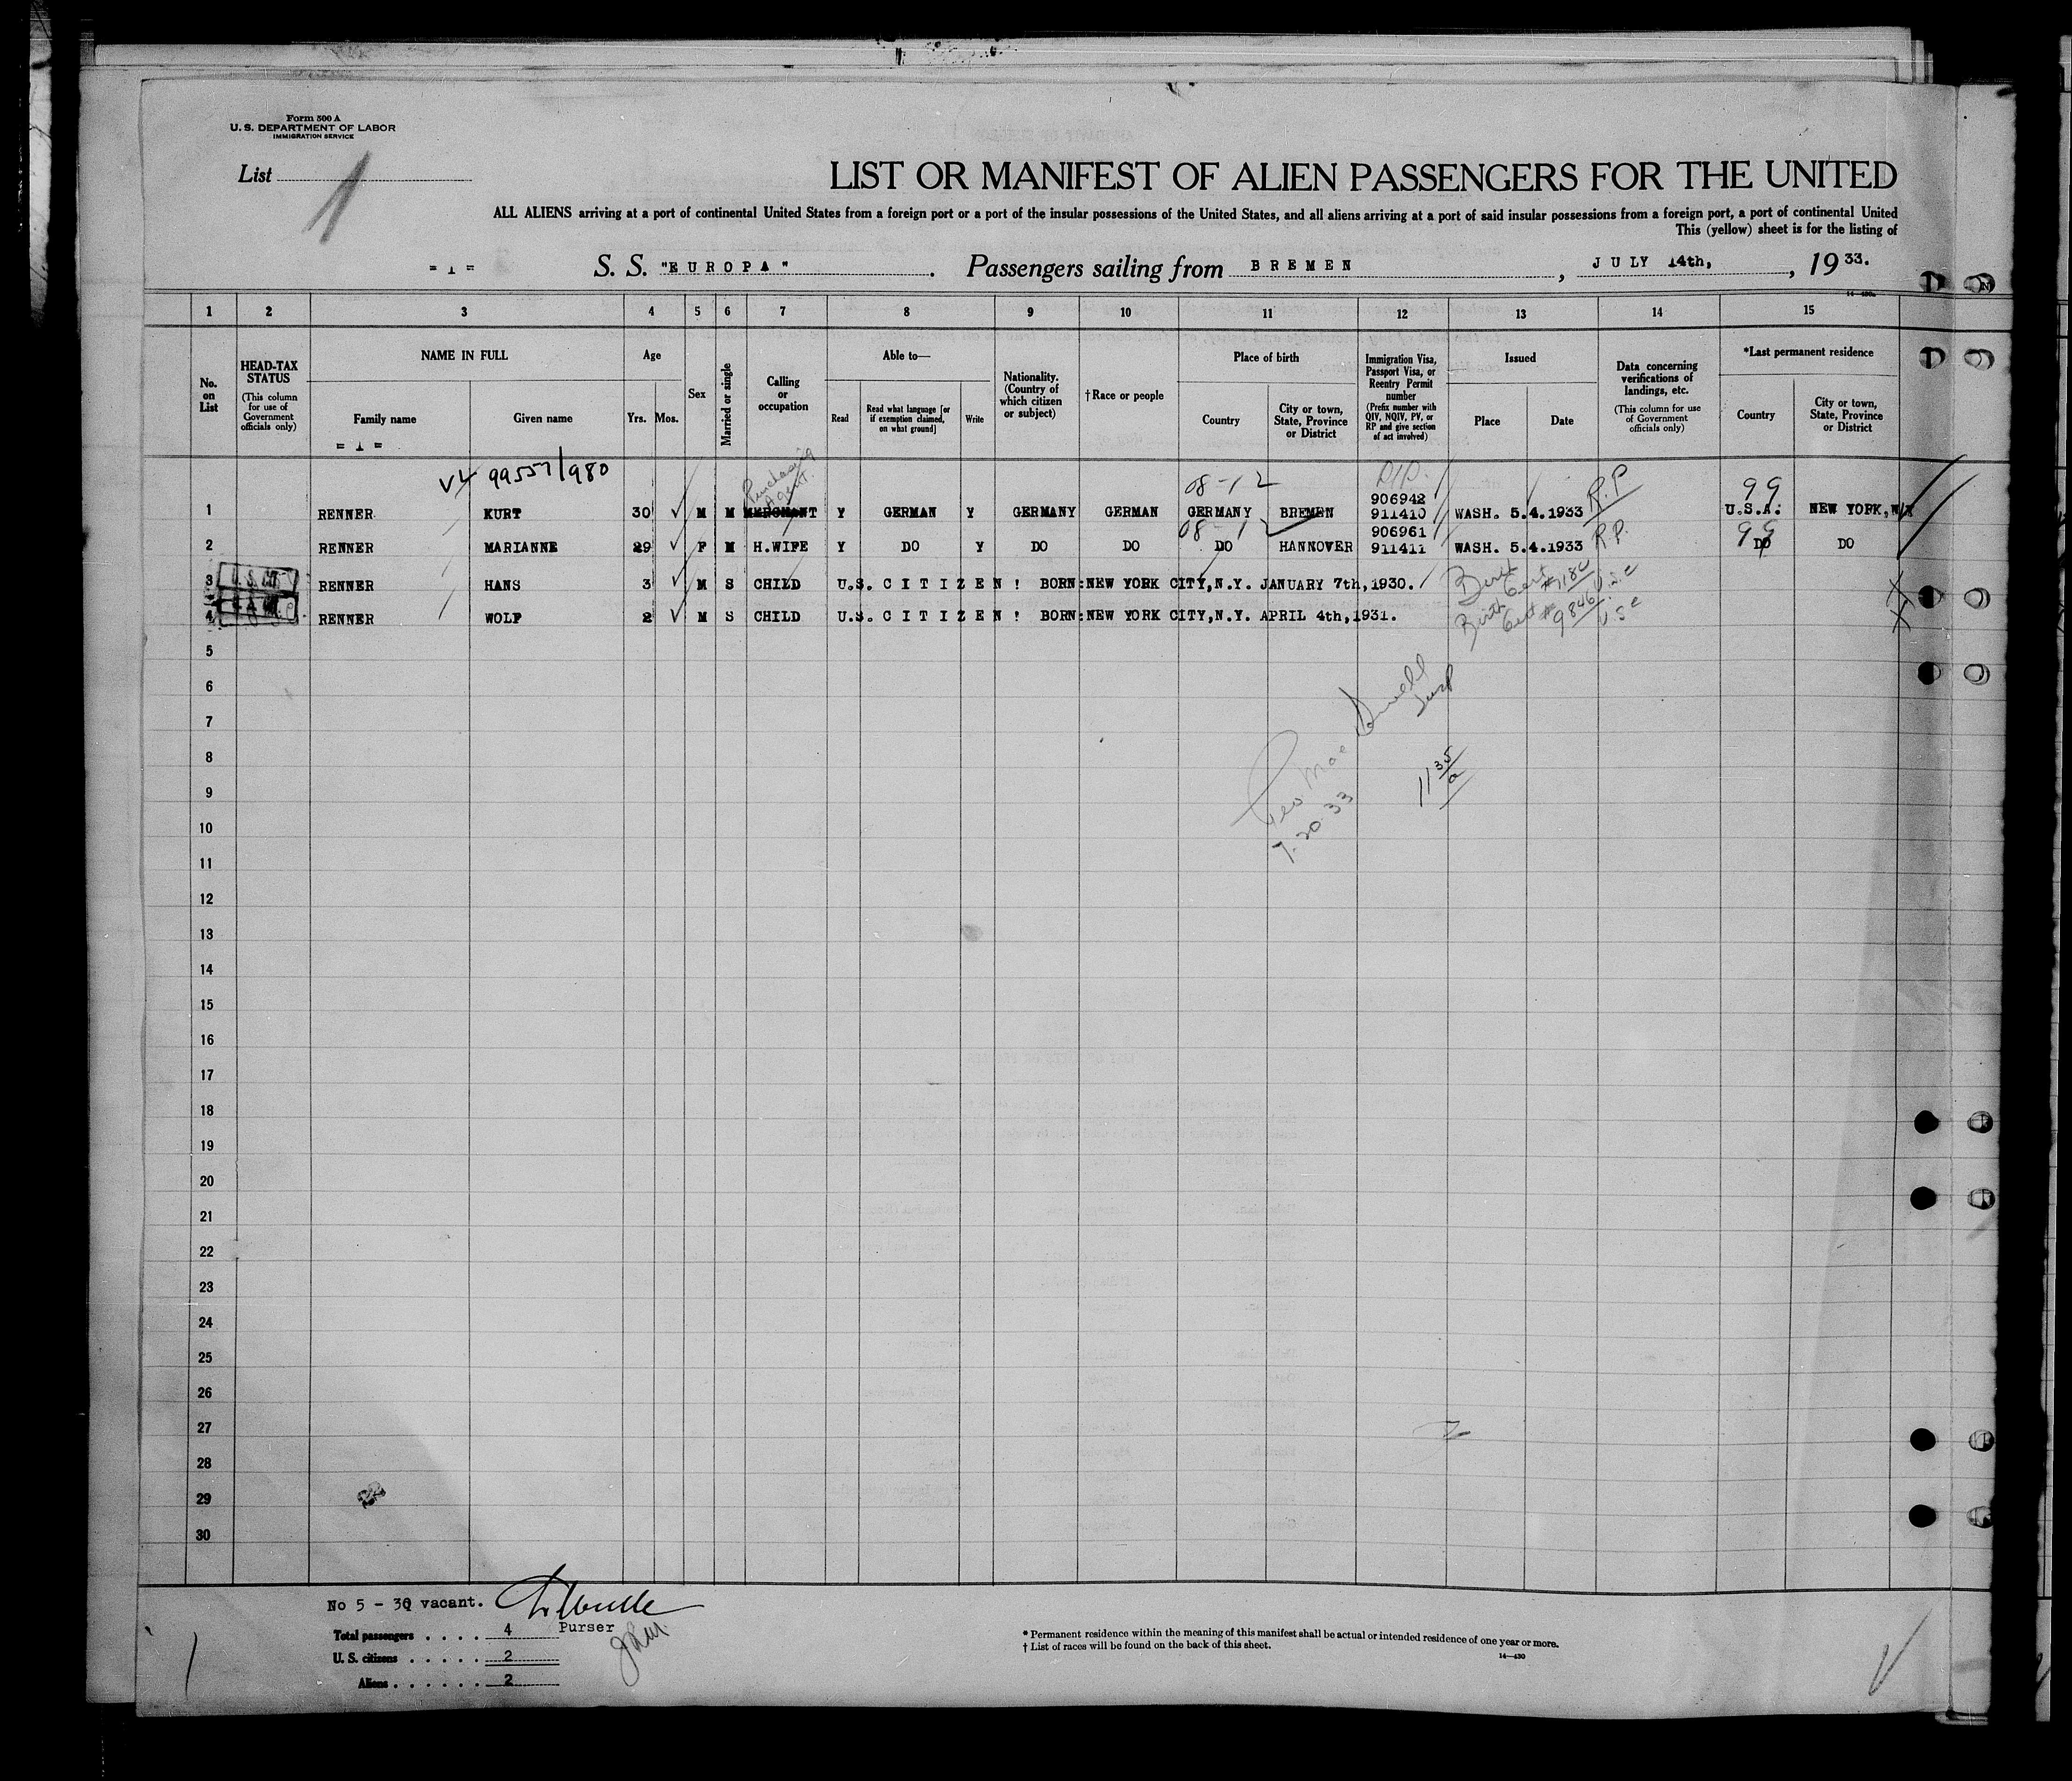 Form 500 A
U. S. DEPARTMENT OF LABOR
IMMIGRATION SERVICE
List 1
LIST OR MANIFEST OF ALIEN PASSENGERS FOR THE UNITED
ALL ALIENS arriving at a port of continental United States from a foreign port or a port of the insular possessions of the United States, and all aliens arriving at a port of said insular possessions from a foreign port, a port of continental United
This (yellow) sheet is for the listing of
= 1 = S. S. "EUROPA" . Passengers sailing from BREMEN , JULY 14th, , 19 33.
1 2 3 4 5 6 7 8 9 10 11 12 13 14 15
No. on List
HEAD-TAX STATUS
(This column for use of Government officials only)
NAME IN FULL
Family name
Given name
= 1 =
Age
Yrs. Mos.
Sex
Married or single
Calling or occupation
Able to—
Read
Read what language [or if exemption claimed, on what ground]
Write
Nationality. (Country of which citizen or subject)
†Race or people
Place of birth
Country
City or town, State, Province or District
Immigration Visa, Passport Visa, or Reentry Permit number
(Prefix number with QIV, NQIV, PV, or RP and give section of act involved)
Issued
Place
Date
Data concerning verifications of landings, etc.
(This column for use of Government officials only)
*Last permanent residence
Country
City or town, State, Province or District
99557/980
Purchasing Agent
08-12
99
906942
1 RENNER KURT 30 M M MERCHANT Y GERMAN Y GERMANY GERMAN GERMANY BREMEN 911410 WASH. 5.4.1933 R.P U.S.A. NEW YORK, N.Y
08-12
906961
99
2 RENNER MARIANNE 29 F M H.WIFE Y DO Y DO DO DO HANNOVER 911411 WASH. 5.4.1933 R.P. DO DO
3 RENNER HANS 3 M S CHILD U.S. CITIZEN! BORN:NEW YORK CITY,N.Y. JANUARY 7th,1930. Birth Cert
4 RENNER WOLF 2 M S CHILD U.S. CITIZEN! BORN:NEW YORK CITY,N.Y. APRIL 4th,1931. Birth Cert #9846
5
6
7
8
9
7-20-33
11 35/a
10
11
12
13
14
15
16
17
18
19
20
21
22
23
24
25
26
27
28
29
30
No 5 - 30 vacant.
Purser
Total passengers . . . . 4
U. S. citizens . . . . . 2
Aliens . . . . . . 2
* Permanent residence within the meaning of this manifest shall be actual or intended residence of one year or more.
† List of races will be found on the back of this sheet.
14—430